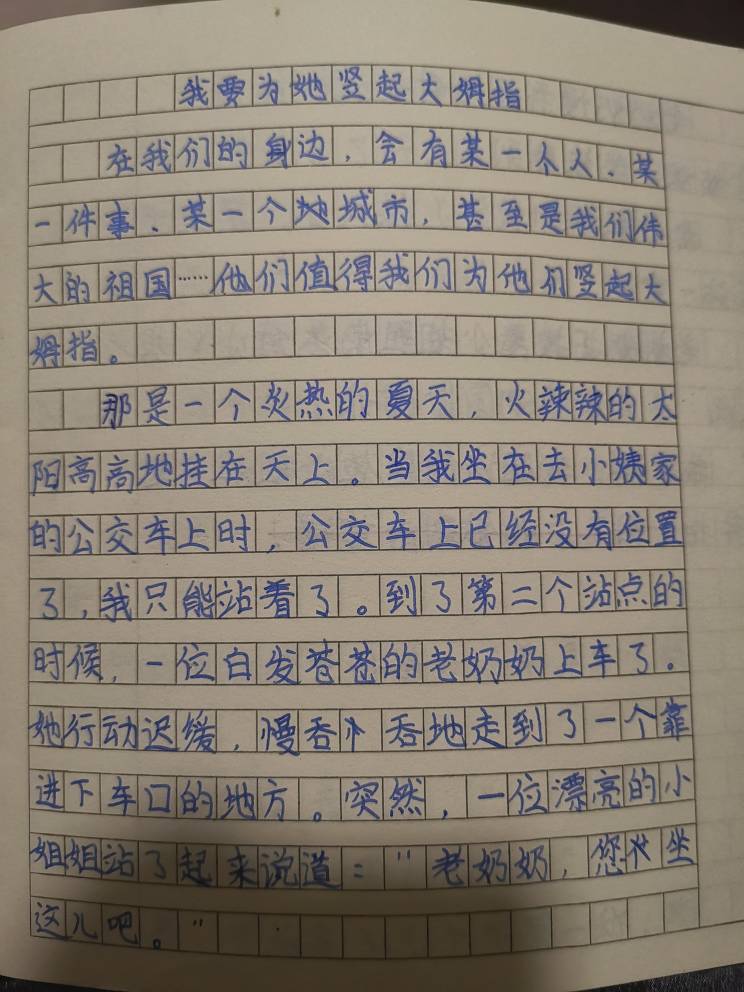 我要为她竖起大姆指
在我们的身边，会有某一个人、某
一件事、某一个城市，甚至是我们伟
大的祖国……他们值得我们为他们竖起大
姆指。
那是一个炎热的夏天，火辣辣的太
阳高高地挂在天上。当我坐在去小姨家
的公交车上时，公交车上已经没有位置
了，我只能站着了。到了第二个站点的
时候，一位白发苍苍的老奶奶上车了。
她行动迟缓，慢吞吞地走到了一个靠
进下车口的地方。突然，一位漂亮的小
姐姐站了起来说道："老奶奶，您坐
这儿吧。"